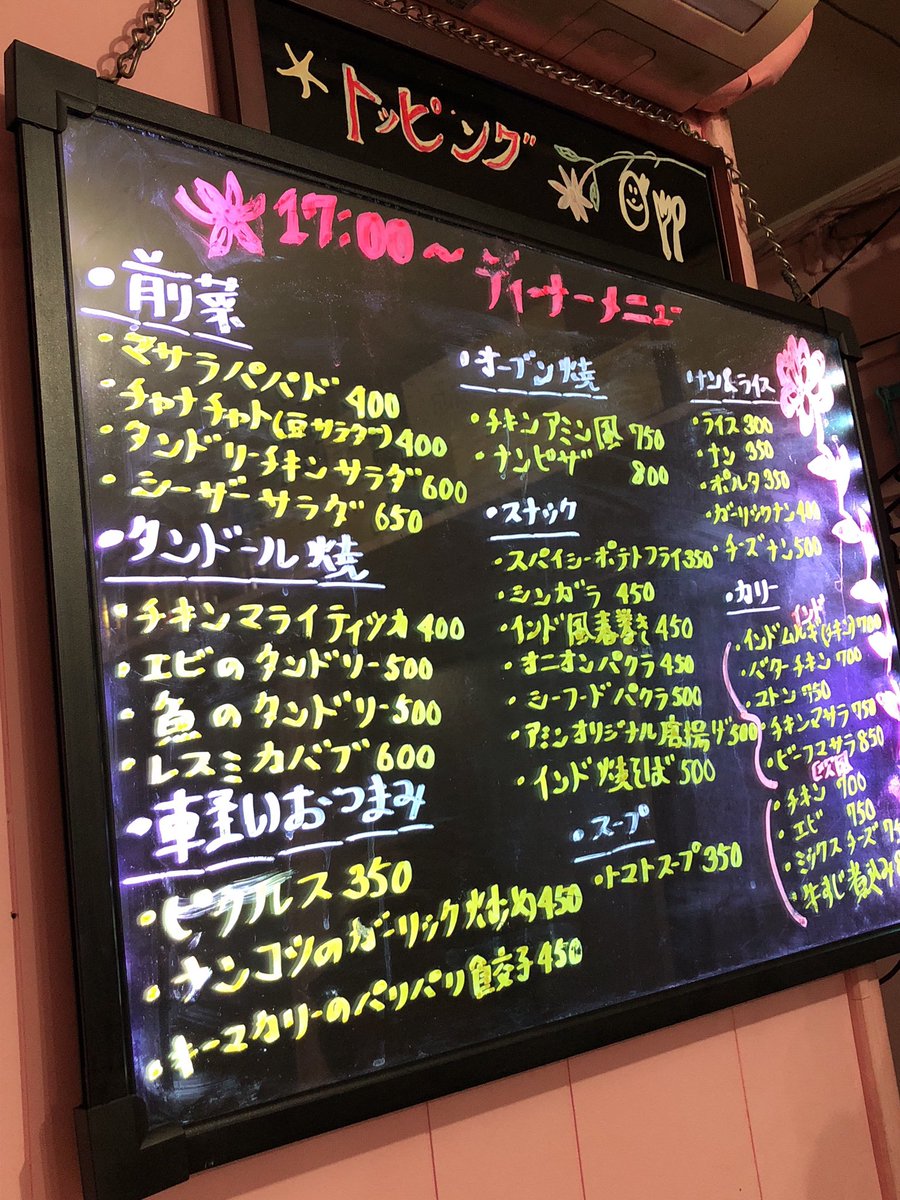 トッピング
17:00～ ディナーメニュー
・前菜
・マサラパパド 400
・チャナチャト(豆サラダ) 400
・タンドリーチキンサラダ 600
・シーザーサラダ 650
・タンドール焼
・チキンマライティッカ 400
・エビのタンドリー 500
・魚のタンドリー 500
・レスミカバブ 600
・軽いおつまみ
・ピクルス 350
・ナンコツのガーリック炒め 450
・キーマカリーのパリパリ餃子 450
・オーブン焼
・チキンアミン風 750
・ナンピザ 800
・スナック
・スパイシーポテトフライ 350
・シンガラ 450
・インド風春巻き 450
・オニオンパクラ 450
・シーフードパクラ 500
・アミンオリジナル唐揚げ 500
・インド焼そば 500
・スープ
・トマトスープ 350
・ナン&ライス
・ライス 300
・ナン 350
・ポルタ 350
・ガーリックナン 400
・チーズナン 500
・カリー
インド
・インドムルギ(チキン) 700
・バターチキン 700
・マトン 750
・チキンマサラ 750
・ビーフマサラ 850
欧風
・チキン 700
・エビ 750
・ミックスチーズ
・牛すじ煮込み